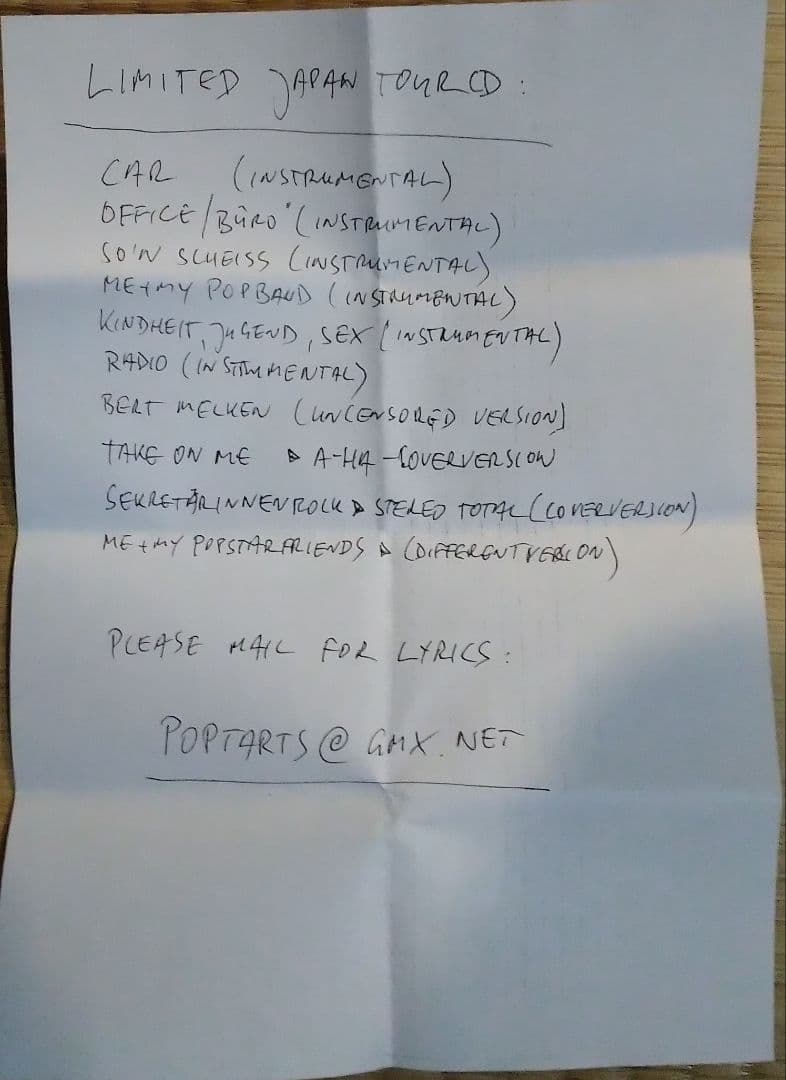 LIMITED JAPAN TOUR CD:
CAR (INSTRUMENTAL)
OFFICE/BÜRO (INSTRUMENTAL)
SO'N SCHEISS (INSTRUMENTAL)
ME+MY POPBAND (INSTRUMENTAL)
KINDHEIT, JUGEND, SEX (INSTRUMENTAL)
RADIO (INSTRUMENTAL)
BERT MELKEN (UNCENSORED VERSION)
TAKE ON ME ▷ A-HA-COVERVERSION
SEKRETÄRINNENROCK ▷ STEREO TOTAL (COVERVERSION)
ME+MY POPSTARFRIENDS ▷ (DIFFERENT VERSION)
PLEASE MAIL FOR LYRICS:
POPTARTS@GMX.NET